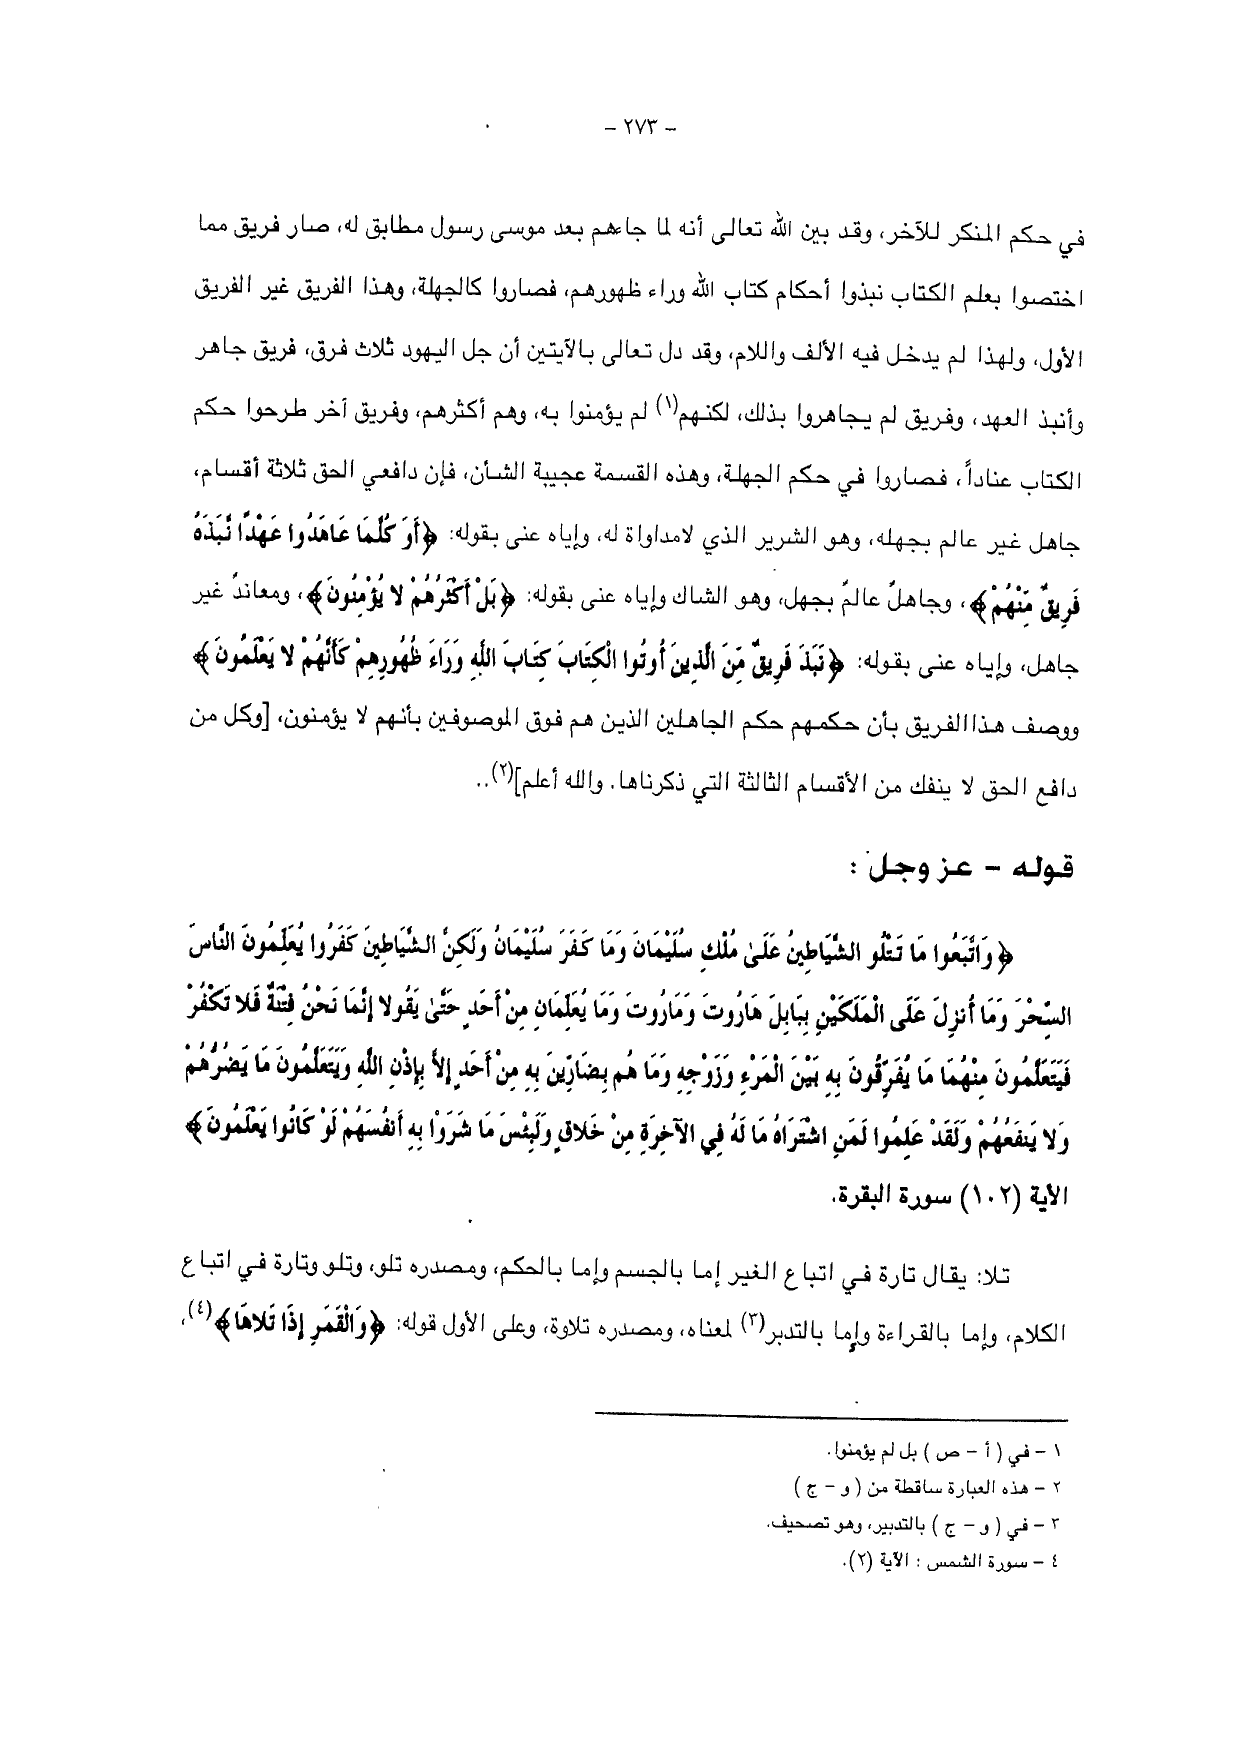 - ٢٧٣ -
في حكم المنكر للآخر، وقد بين الله تعالى أنه لما جاءهم بعد موسى رسول مطابق له، صار فريق مما
اختصوا بعلم الكتاب نبذوا أحكام كتاب الله وراء ظهورهم، فصاروا كالجهلة، وهذا الفريق غير الفريق
الأول، ولهذا لم يدخل فيه الألف واللام، وقد دل تعالى بالآيتين أن جل اليهود ثلاث فرق، فريق جاهر
وأنبذ العهد، وفريق لم يجاهروا بذلك، لكنهم(١) لم يؤمنوا به، وهم أكثرهم، وفريق آخر طرحوا حكم
الكتاب عناداً، فصاروا في حكم الجهلة، وهذه القسمة عجيبة الشأن، فإن دافعي الحق ثلاثة أقسام،
جاهل غير عالم بجهله، وهو الشرير الذي لامداواة له، وإياه عنى بقوله: ﴿أَوَ كُلَّمَا عَاهَدُوا عَهْدًا نَّبَذَهُ
فَرِيقٌ مِّنْهُمْ﴾، وجاهلٌ عالمٌ بجهل، وهو الشاك وإياه عنى بقوله: ﴿بَلْ أَكْثَرُهُمْ لا يُؤْمِنُونَ﴾، ومعاندٌ غير
جاهل، وإياه عنى بقوله: ﴿نَبَذَ فَرِيقٌ مِّنَ الَّذِينَ أُوتُوا الْكِتَابَ كِتَابَ اللَّهِ وَرَاءَ ظُهُورِهِمْ كَأَنَّهُمْ لا يَعْلَمُونَ﴾
ووصف هذا الفريق بأن حكمهم حكم الجاهلين الذين هم فوق الموصوفين بأنهم لا يؤمنون، [وكل من
دافع الحق لا ينفك من الأقسام الثالثة التي ذكرناها. والله أعلم](٢)..
قوله - عز وجل :
﴿وَاتَّبَعُوا مَا تَتْلُو الشَّيَاطِينُ عَلَىٰ مُلْكِ سُلَيْمَانَ وَمَا كَفَرَ سُلَيْمَانُ وَلَكِنَّ الشَّيَاطِينَ كَفَرُوا يُعَلِّمُونَ النَّاسَ
السِّحْرَ وَمَا أُنزِلَ عَلَى الْمَلَكَيْنِ بِبَابِلَ هَارُوتَ وَمَارُوتَ وَمَا يُعَلِّمَانِ مِنْ أَحَدٍ حَتَّىٰ يَقُولا إِنَّمَا نَحْنُ فِتْنَةٌ فَلا تَكْفُرْ
فَيَتَعَلَّمُونَ مِنْهُمَا مَا يُفَرِّقُونَ بِهِ بَيْنَ الْمَرْءِ وَزَوْجِهِ وَمَا هُم بِضَارِّينَ بِهِ مِنْ أَحَدٍ إِلاَّ بِإِذْنِ اللَّهِ وَيَتَعَلَّمُونَ مَا يَضُرُّهُمْ
وَلا يَنفَعُهُمْ وَلَقَدْ عَلِمُوا لَمَنِ اشْتَرَاهُ مَا لَهُ فِي الآخِرَةِ مِنْ خَلاقٍ وَلَبِئْسَ مَا شَرَوْا بِهِ أَنفُسَهُمْ لَوْ كَانُوا يَعْلَمُونَ﴾
الآية (١٠٢) سورة البقرة.
تلا: يقال تارة في اتباع الغير إما بالجسم وإما بالحكم، ومصدره تلو، وتلو وتارة في اتباع
الكلام، وإما بالقراءة وإما بالتدبر(٣) لمعناه، ومصدره تلاوة، وعلى الأول قوله: ﴿وَالْقَمَرِ إِذَا تَلاهَا﴾(٤)،
١ - في ( أ - ص ) بل لم يؤمنوا.
٢ - هذه العبارة ساقطة من ( و - ج )
٣ - في ( و - ج ) بالتدبير، وهو تصحيف.
٤ - سورة الشمس : الآية (٢).